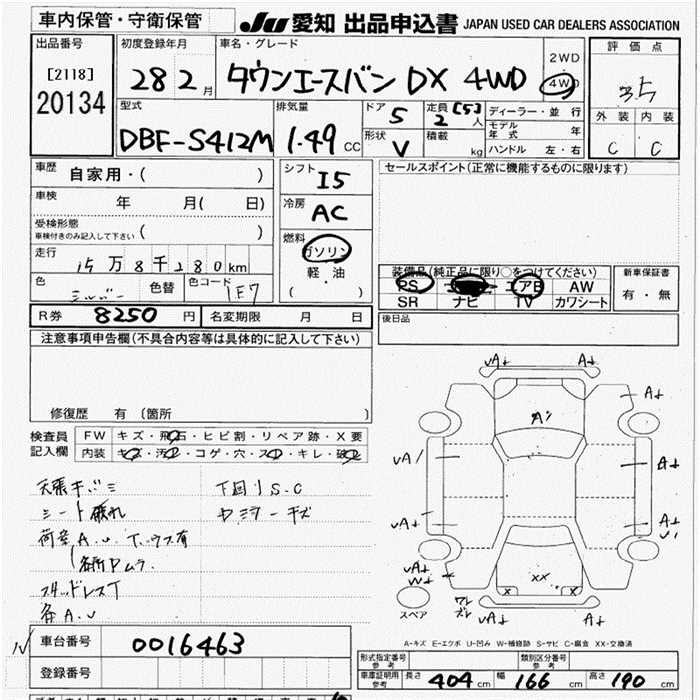 車内保管・守衛保管
JU 愛知 出品申込書 JAPAN USED CAR DEALERS ASSOCIATION
出品番号
[2118]
20134
初度登録年月
28 2月
車名・グレード
タウンエースバン DX 4WD
2WD
4WD
評価点
3.5
外装 内装
C C
型式
DBF-S412M
排気量
1.49 CC
ドア
5
定員 [5]
2 人
形状
V
積載
kg
ディーラー・並行
モデル年式 年
ハンドル 左・右
車歴
自家用・( )
車検
年 月( 日)
受検形態
車検付きのみ記入して下さい ( )
走行
15万8千280km
色
シルバー
色替
色コード
1E7
シフト
I5
冷房
AC
燃料
ガソリン
軽・油
( )
セールスポイント(正常に機能するものに限ります)
装備品(純正品に限り○をつけてください)
PS エアB AW
SR ナビ TV カワシート
新車保証書
有・無
R券 8250 円 名変期限 月 日
後日品
注意事項申告欄(不具合内容等は具体的に記入して下さい)
修復歴 有 (箇所 )
検査員記入欄
FW キズ・飛石・ヒビ割・リペア跡・X要
内装 キズ・汚れ・コゲ・穴・スレ・キレ・破れ
シート破れ
下回りS.C
各A.U
車台番号 0016463
登録番号
A1
A↓
XX
スペア
A-キズ E-エクボ U-凹み W-補修跡 S-サビ C-腐食 XX-交換済
形式指定番号 参考
類別区分番号 参考
車庫証明用 参考 長さ 404 cm 幅 166 cm 高さ 190 cm